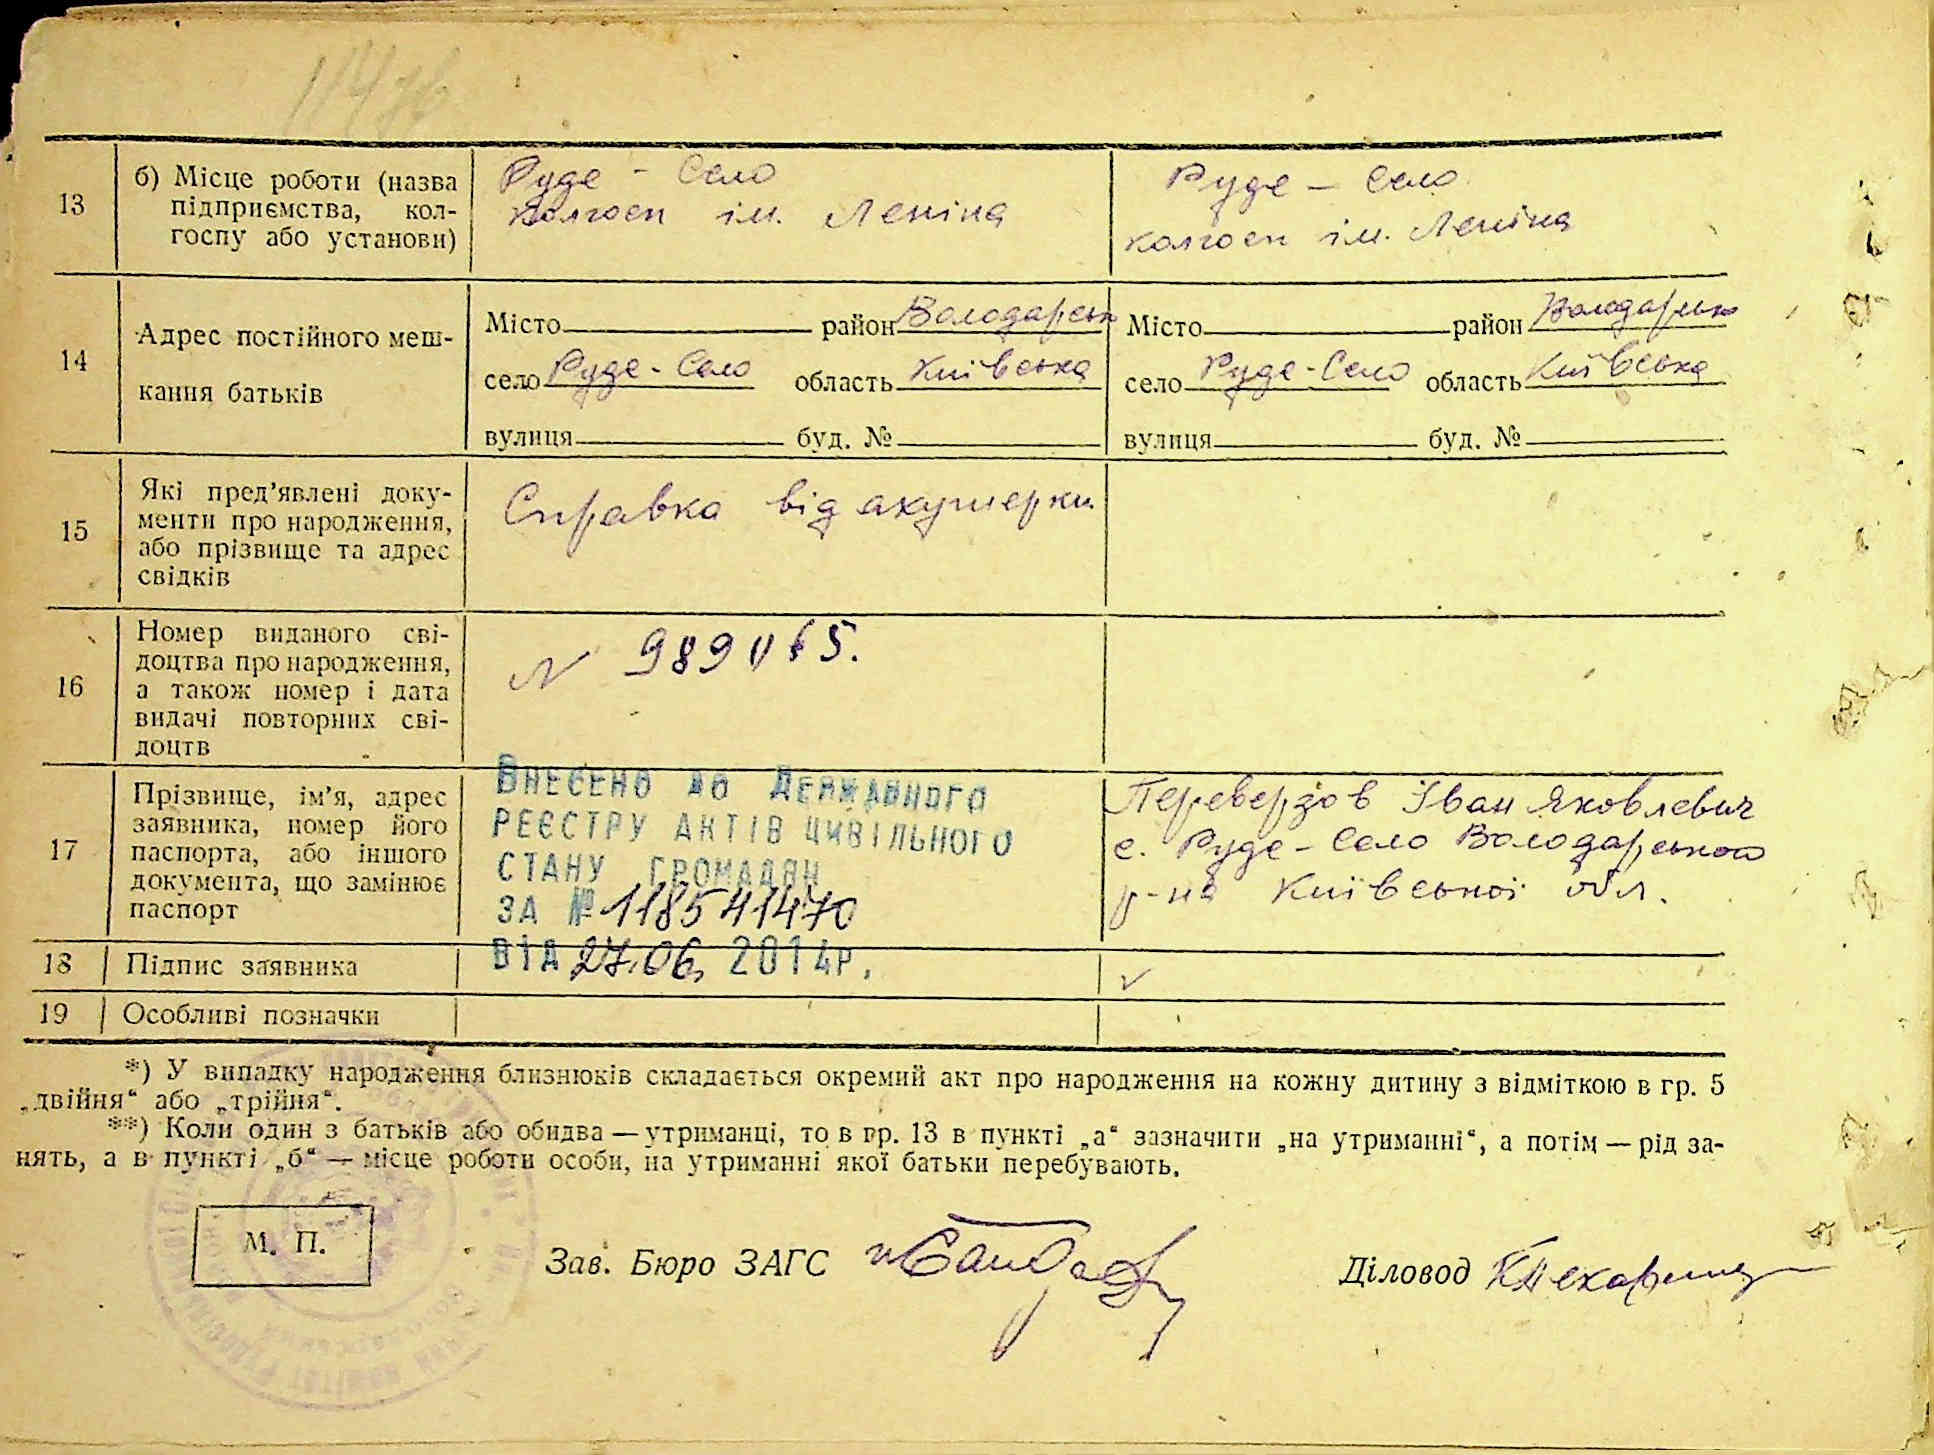 13
б) Місце роботи (назва
підприємства, кол-
госпу або установи)
Руде - Село
колгосп ім. Леніна
Руде - Село
колгосп ім. Леніна
14
Адрес постійного меш-
кання батьків
Місто район Володарськ
село Руде-Село область Київська
вулиця буд. №
Місто район Володарськ
село Руде-Село область Київська
вулиця буд. №
15
Які пред'явлені доку-
менти про народження,
або прізвище та адрес
свідків
Справка від акушерки
16
Номер виданого сві-
доцтва про народження,
а також номер і дата
видачі повторних сві-
доцтв
N 989065.
17
Прізвище, ім'я, адрес
заявника, номер його
паспорта, або іншого
документа, що замінює
паспорт
Внесено до Державного
реєстру актів цивільного
стану громадян
за № 118541470
від 27.06. 2014р.
Переверзов Іван Яковлевич
с. Руде-Село Володарського
р-на Київської обл.
18
Підпис заявника
19
Особливі позначки
*) У випадку народження близнюків складається окремий акт про народження на кожну дитину з відміткою в гр. 5
„двійня“ або „трійня“.
**) Коли один з батьків або обидва — утриманці, то в гр. 13 в пункті „а“ зазначити „на утриманні“, а потім — рід за-
нять, а в пункті „б“ — місце роботи особи, на утриманні якої батьки перебувають.
М. П.
Зав. Бюро ЗАГС
Діловод